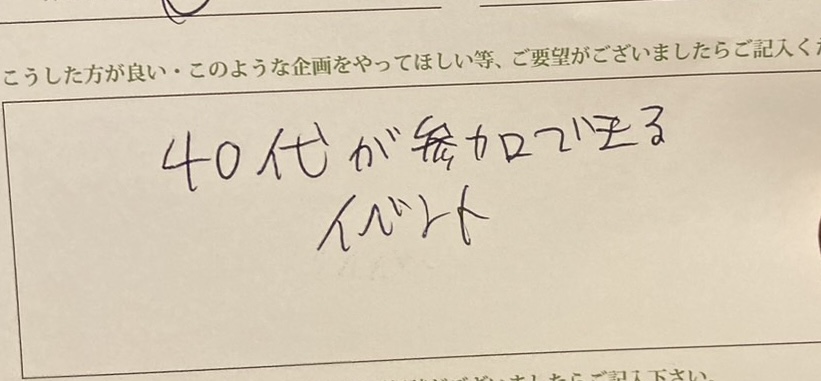 こうした方が良い・このような企画をやってほしい等、ご要望がございましたらご記入くだ
40代が参加できる
イベント
ございましたらご記入下さい。